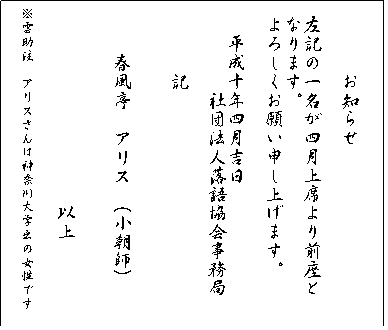 お知らせ
左記の一名が四月上席より前座と
なります。
よろしくお願い申し上げます。
平成十年四月吉日
社団法人落語協会事務局
記
春風亭 アリス (小朝師)
以上
※雲助注 アリスさんは神奈川大学出の女性です